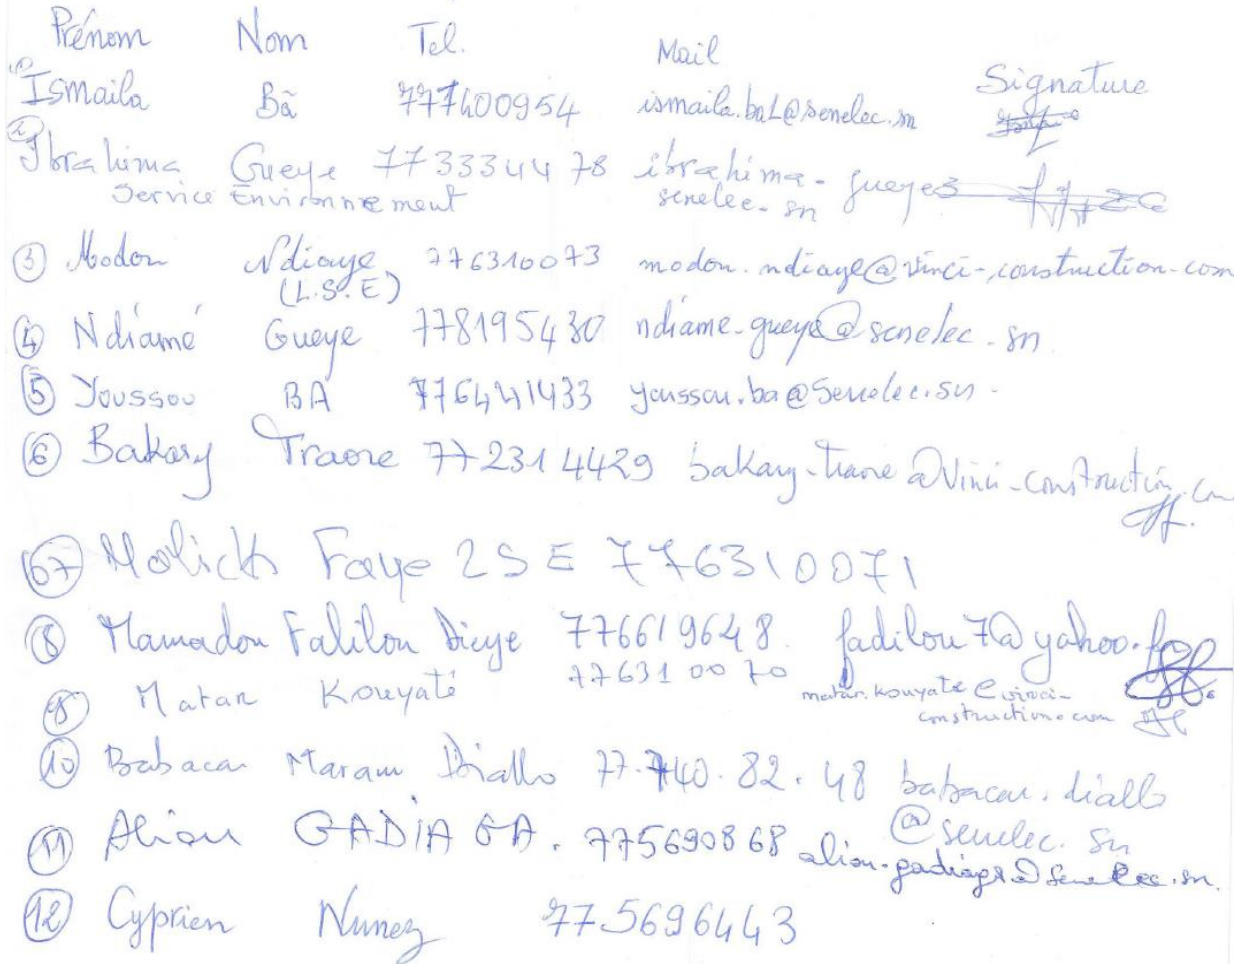 Prénom Nom Tel. Mail Signature
1) Ismaila Bâ 777400954 ismaila.ba1@senelec.sn
2) Ibrahima Gueye 773334478 ibrahima-gueye3
Service Environnement senelec.sn
3 Modou Ndiaye 776310073 modou.ndiaye@vinci-construction.com
(L.S.E)
4 Ndiamé Gueye 778195430 ndiame.gueye@senelec.sn
5 Youssou BA 776441433 youssou.ba@Senelec.sn
6 Bakary Traore 772314429 bakary.traore@vinci-construction.com
7 Malick Faye 2SE 776310071
8 Mamadou Falilou Dieye 776619648. fadilou7@yahoo.fr
9 Matar Kouyaté 776310070 matar.kouyate@vinci-
construction.com
10 Babacar Maram Diallo 77.740.82.48 babacar.diallo
@senelec.sn
11 Aliou GADIAGA. 775690868 aliou.gadiaga@senelec.sn.
12 Cyprien Nunez 775696443